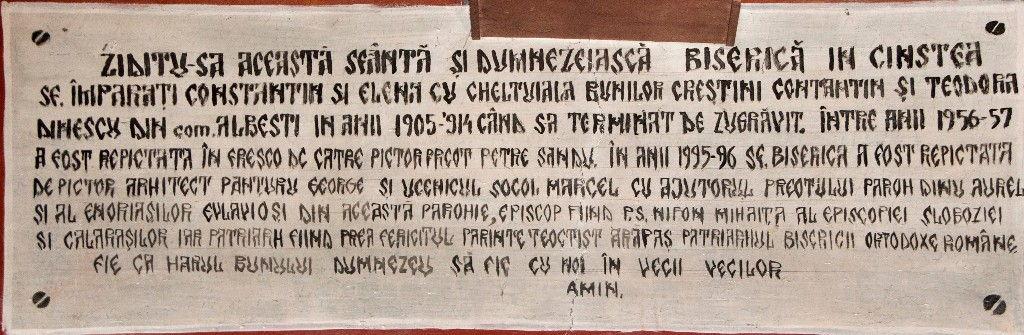 ZIDITU-SA ACEASTĂ SFÂNTĂ ȘI DUMNEZEIASCĂ BISERICĂ IN CINSTEA
SF. ÎMPARAȚI CONSTANTIN SI ELENA CU CHELTUIALA BUNILOR CREȘTINI CONTANTIN ȘI TEODORA
DINESCU DIN com. ALBESTI IN ANII 1905-'914 CÂND SA TERMINAT DE ZUGRĂVIT. ÎNTRE ANII 1956-57
A FOST REPICTATA ÎN FRESCO DE CATRE PICTOR PREOT PETRE SANDU. ÎN ANII 1995-96 SF. BISERICA A FOST REPICTATA
DE PICTOR ARHITECT PANTURU GEORGE SI UCENICUL SOCOL MARCEL CU AJUTORUL PREOTULUI PAROH DINU AUREL
SI AL ENORIASILOR EVLAVIOSI DIN ACEASTĂ PAROHIE, EPISCOP FIIND P.S. NIFON MIHAIȚA AL EPISCOPIEI SLOBOZIEI
SI CALARAȘILOR IAR PATRIARH FIIND PREA FERICITUL PARINTE TEOCTIST ARAPAȘ PATRIARHUL BISERICII ORTODOXE ROMÂNE
FIE CA HARUL BUNULUI DUMNEZEU SĂ FIE CU NOI ÎN VECII VECILOR
AMIN.